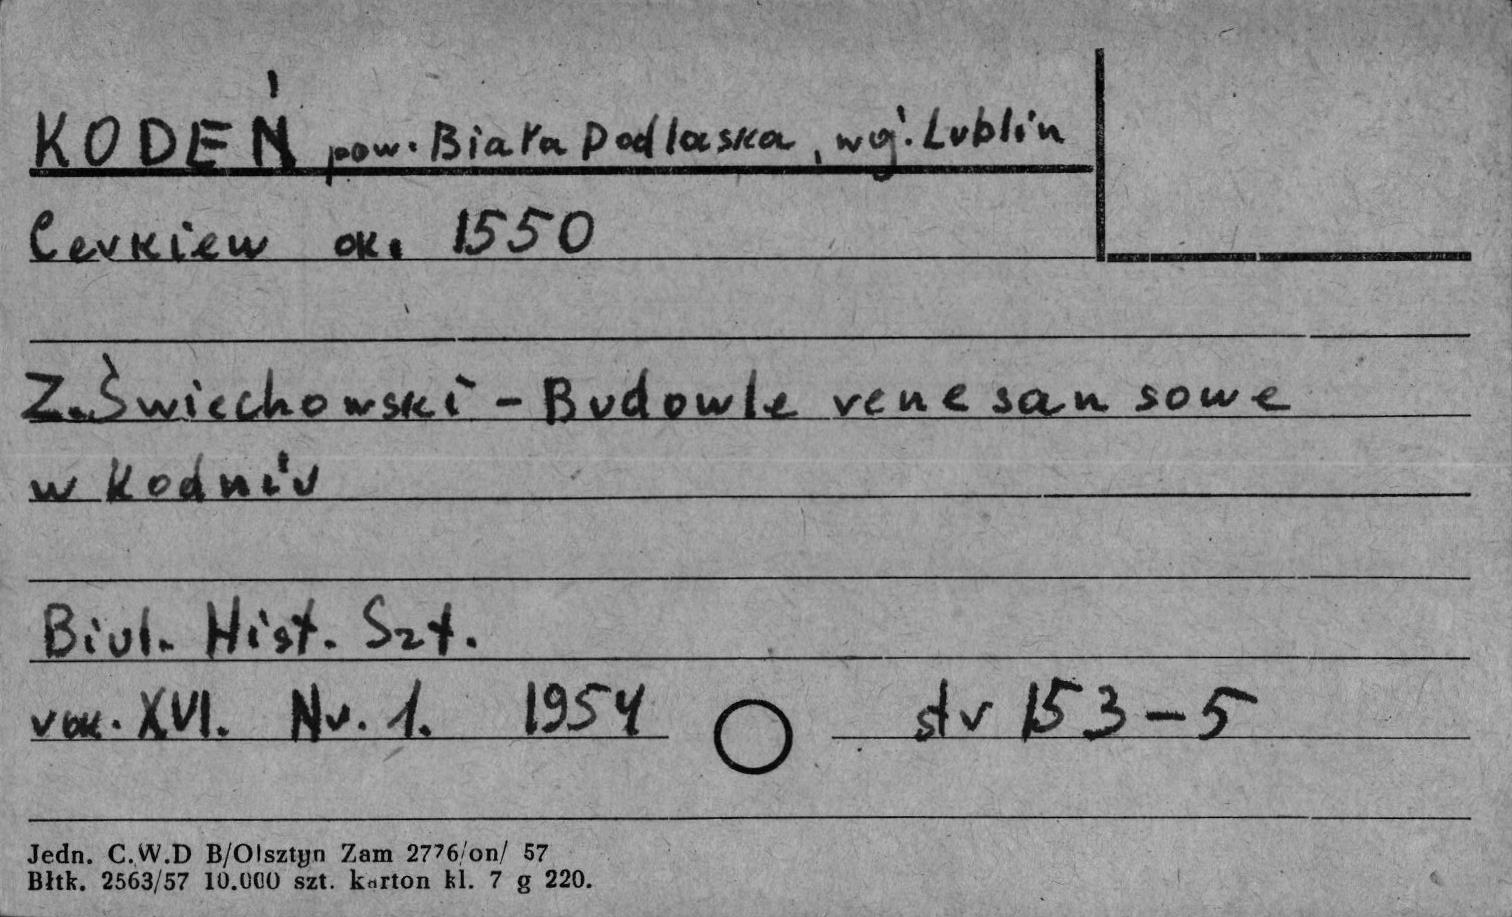 KODEŃ pow. Biała Podlaska, woj. Lublin
Cerkiew ok. 1550
Z. Świechowski - Budowle renesansowe
w Kodniu
Biul. Hist. Szt.
rok. XVI. Nr. 1. 1954 str 153-5
Jedn. C.W.D B/Olsztyn Zam 2776/on/ 57
Błtk. 2563/57 10.000 szt. karton kl. 7 g 220.